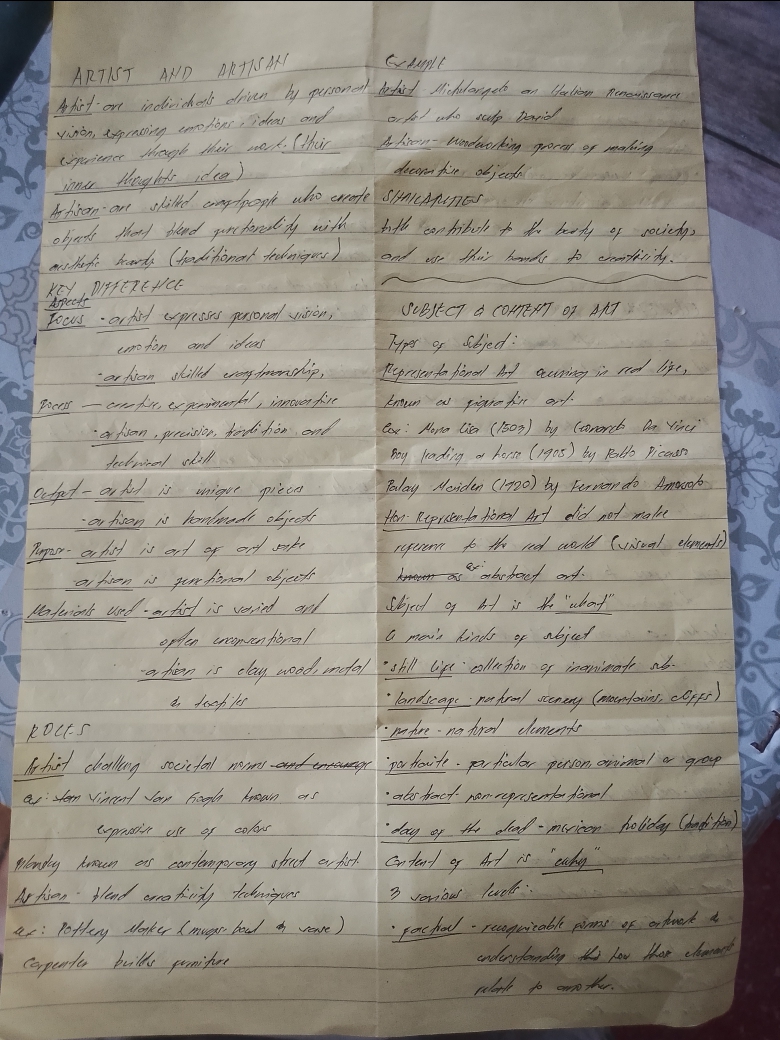 ARTIST AND ARTISAN
Artist - are individuals driven by personal
vision, expressing emotions, ideas and
experience through their work. (their
inner thoughts idea)
Artisan - are skilled craftpeople who create
objects that blend functionality with
aesthetic beauty (traditional techniques)
KEY DIFFERENCE
Aspects
Focus - artist expresses personal vision,
emotion and ideas
- artisan skilled craftmanship,
Process - creative, experimental, innovative
- artisan, precision, tradition and
technical skill
Output - artist is unique pieces
- artisan is handmade objects
Purpose - artist is art of art sake
artisan is functional objects
Materials Used - artist is varied and
often unconventional
- artisan is clay, wood, metal
& textiles
ROLES
Artist challeng societal norms and encourage
ex: Vincent Van Gogh known as
expressive use of colors
known as contemporary street artist.
Artisan - blend creativity techniques
ex: Pottery Maker (mugs, bowl & vase)
Carpenter builds furniture
EXAMPLE
Artist - Michelangelo an Italian Renaissance
artist who sculp David
Artisan - Woodworking process of making
decorative objects
SIMILARITIES
both contribute to the beauty of society,
and use their hands to creativity.
SUBJECT & CONTENT OF ART
Types of Subject:
Representational Art in real life,
known as figurative art.
ex: Mona Lisa (1503) by Leonardo Da Vinci
Boy leading a horse (1905) by Pablo Picasso
Palay Maiden (1920) by Fernando Amorsolo
Non-Representational Art did not make
reference to the real world (visual elements)
known as ex: abstract art.
Subject of Art is the "what"
6 main kinds of subject
• still life - collection of inanimate sub.
• landscape - natural scenery (mountains, cliffs)
• nature - natural elements
• portraite - particular person, animal or group
• abstract - non-representational
• day of the dead - mexican holiday (tradition)
Content of Art is "why"
3 various levels:
• factual - recognizable forms of artwork &
understanding how those elements
relate to another.